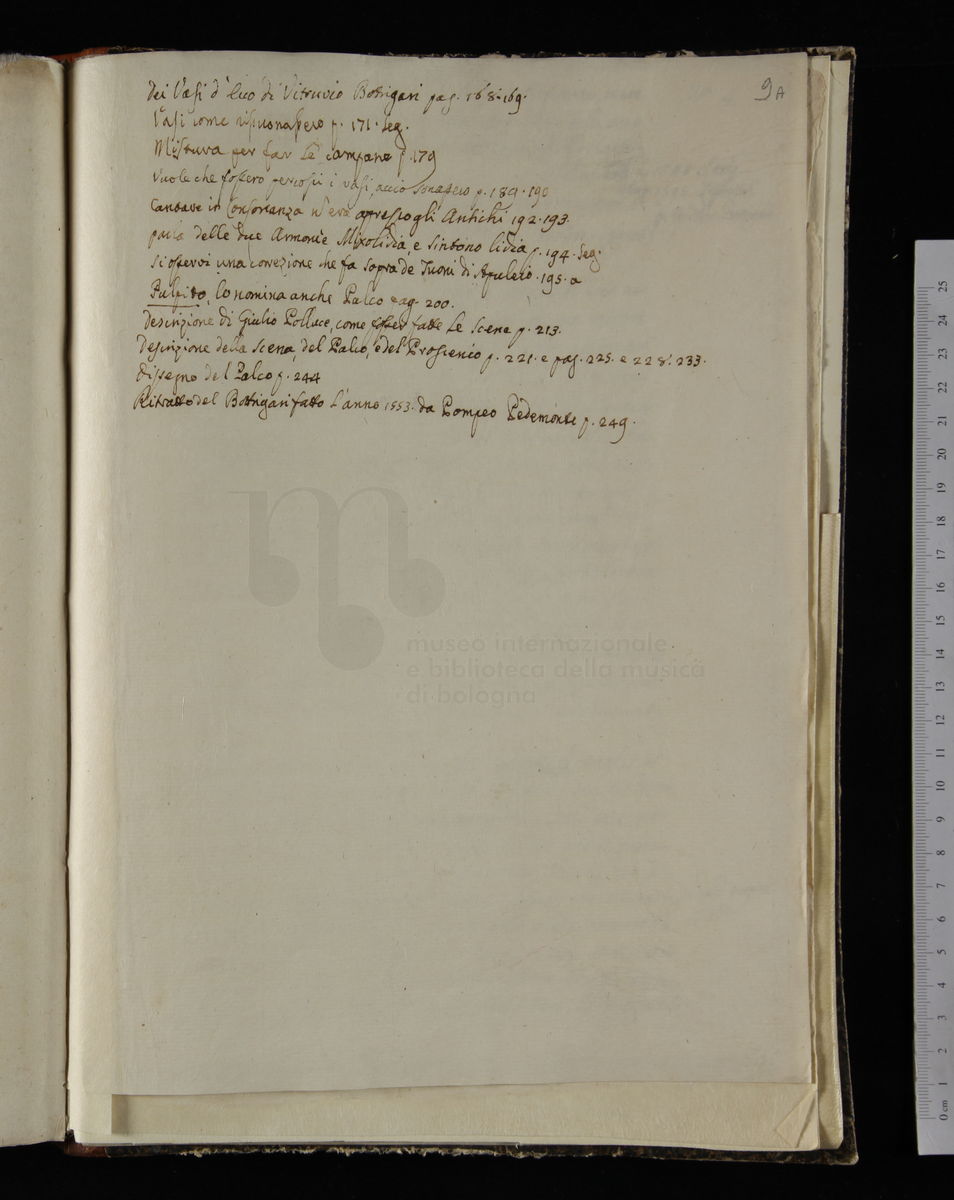 9A
Dei Vasi d'Eco di Vitruvio Bottrigari pag. 168.169.
Vasi come risuonassero p. 171. seg.
Mistura per far le campane p. 179
Vuole che fossero percossi i vasi, acciò sonassero p. 189. 190
Cantare in Consonanza v'era apresso gli Antichi 192. 193.
parla delle due Armonie Mixolidia, e Sintono lidia p. 194. seg.
Si osservi una correzione che fa sopra de Tuoni di Apuleio. 195. a
Pulpito, lo nomina anche Palco pag. 200.
Descrizione di Giulio Polluce, come fosser fatte le Scene p. 213.
Descrizione della Scena, del Palco, e del Proscenico p. 221. e pag. 225. e 228. 233.
Dissegno del Palco p. 244
Ritratto del Bottrigari fatto l'anno 1553. da Pompeo Pedemonte p. 249.
museo internazionale
e biblioteca della musica
di bologna
25
24
23
22
21
20
19
18
17
16
15
14
13
12
11
10
9
8
7
6
5
4
3
2
1
0 cm